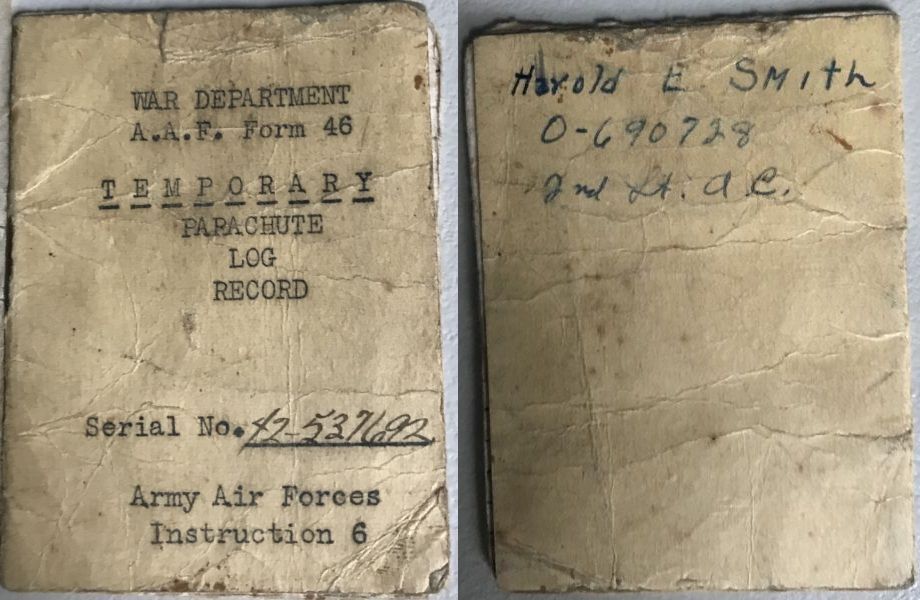 WAR DEPARTMENT
A.A.F. Form 46
TEMPORARY
PARACHUTE
LOG
RECORD
Serial No. 42-537692
Army Air Forces
Instruction 6
Harold E. Smith
O-690728
2nd Lt. A.C.